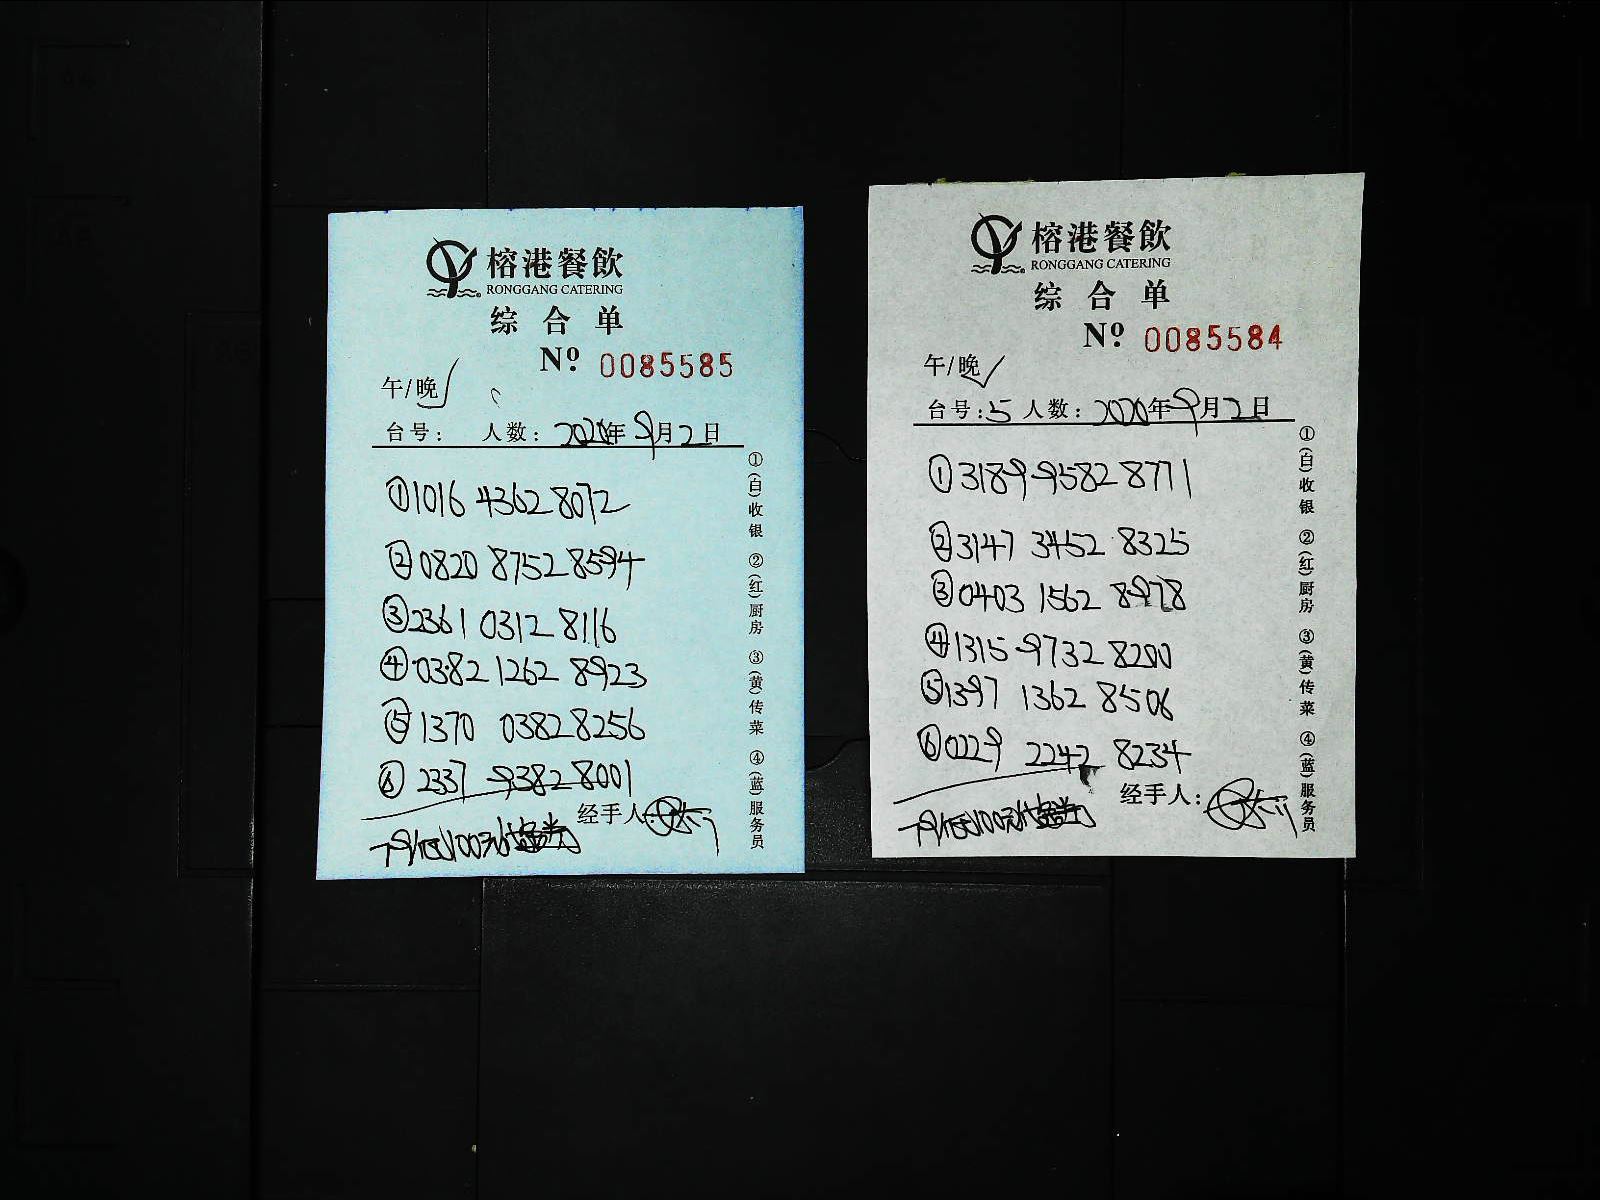 榕港餐飲
RONGGANG CATERING
综合单
Nº 0085585
午/晚
台号: 人数: 2020年9月2日
①1016 4362 8072
②0820 8752 8594
③2361 0312 8116
④0382 1262 8923
⑤1370 0382 8256
⑥2337 9382 8001
经手人:
①(白)收银 ②(红)厨房 ③(黄)传菜 ④(蓝)服务员
榕港餐飲
RONGGANG CATERING
综合单
Nº 0085584
午/晚
台号:5 人数: 2020年9月2日
①3189 9582 8771
②3147 3452 8325
③0403 1562 8978
④1315 9732 8200
⑤1397 1362 8506
⑥0229 2242 8234
经手人:
①(白)收银 ②(红)厨房 ③(黄)传菜 ④(蓝)服务员